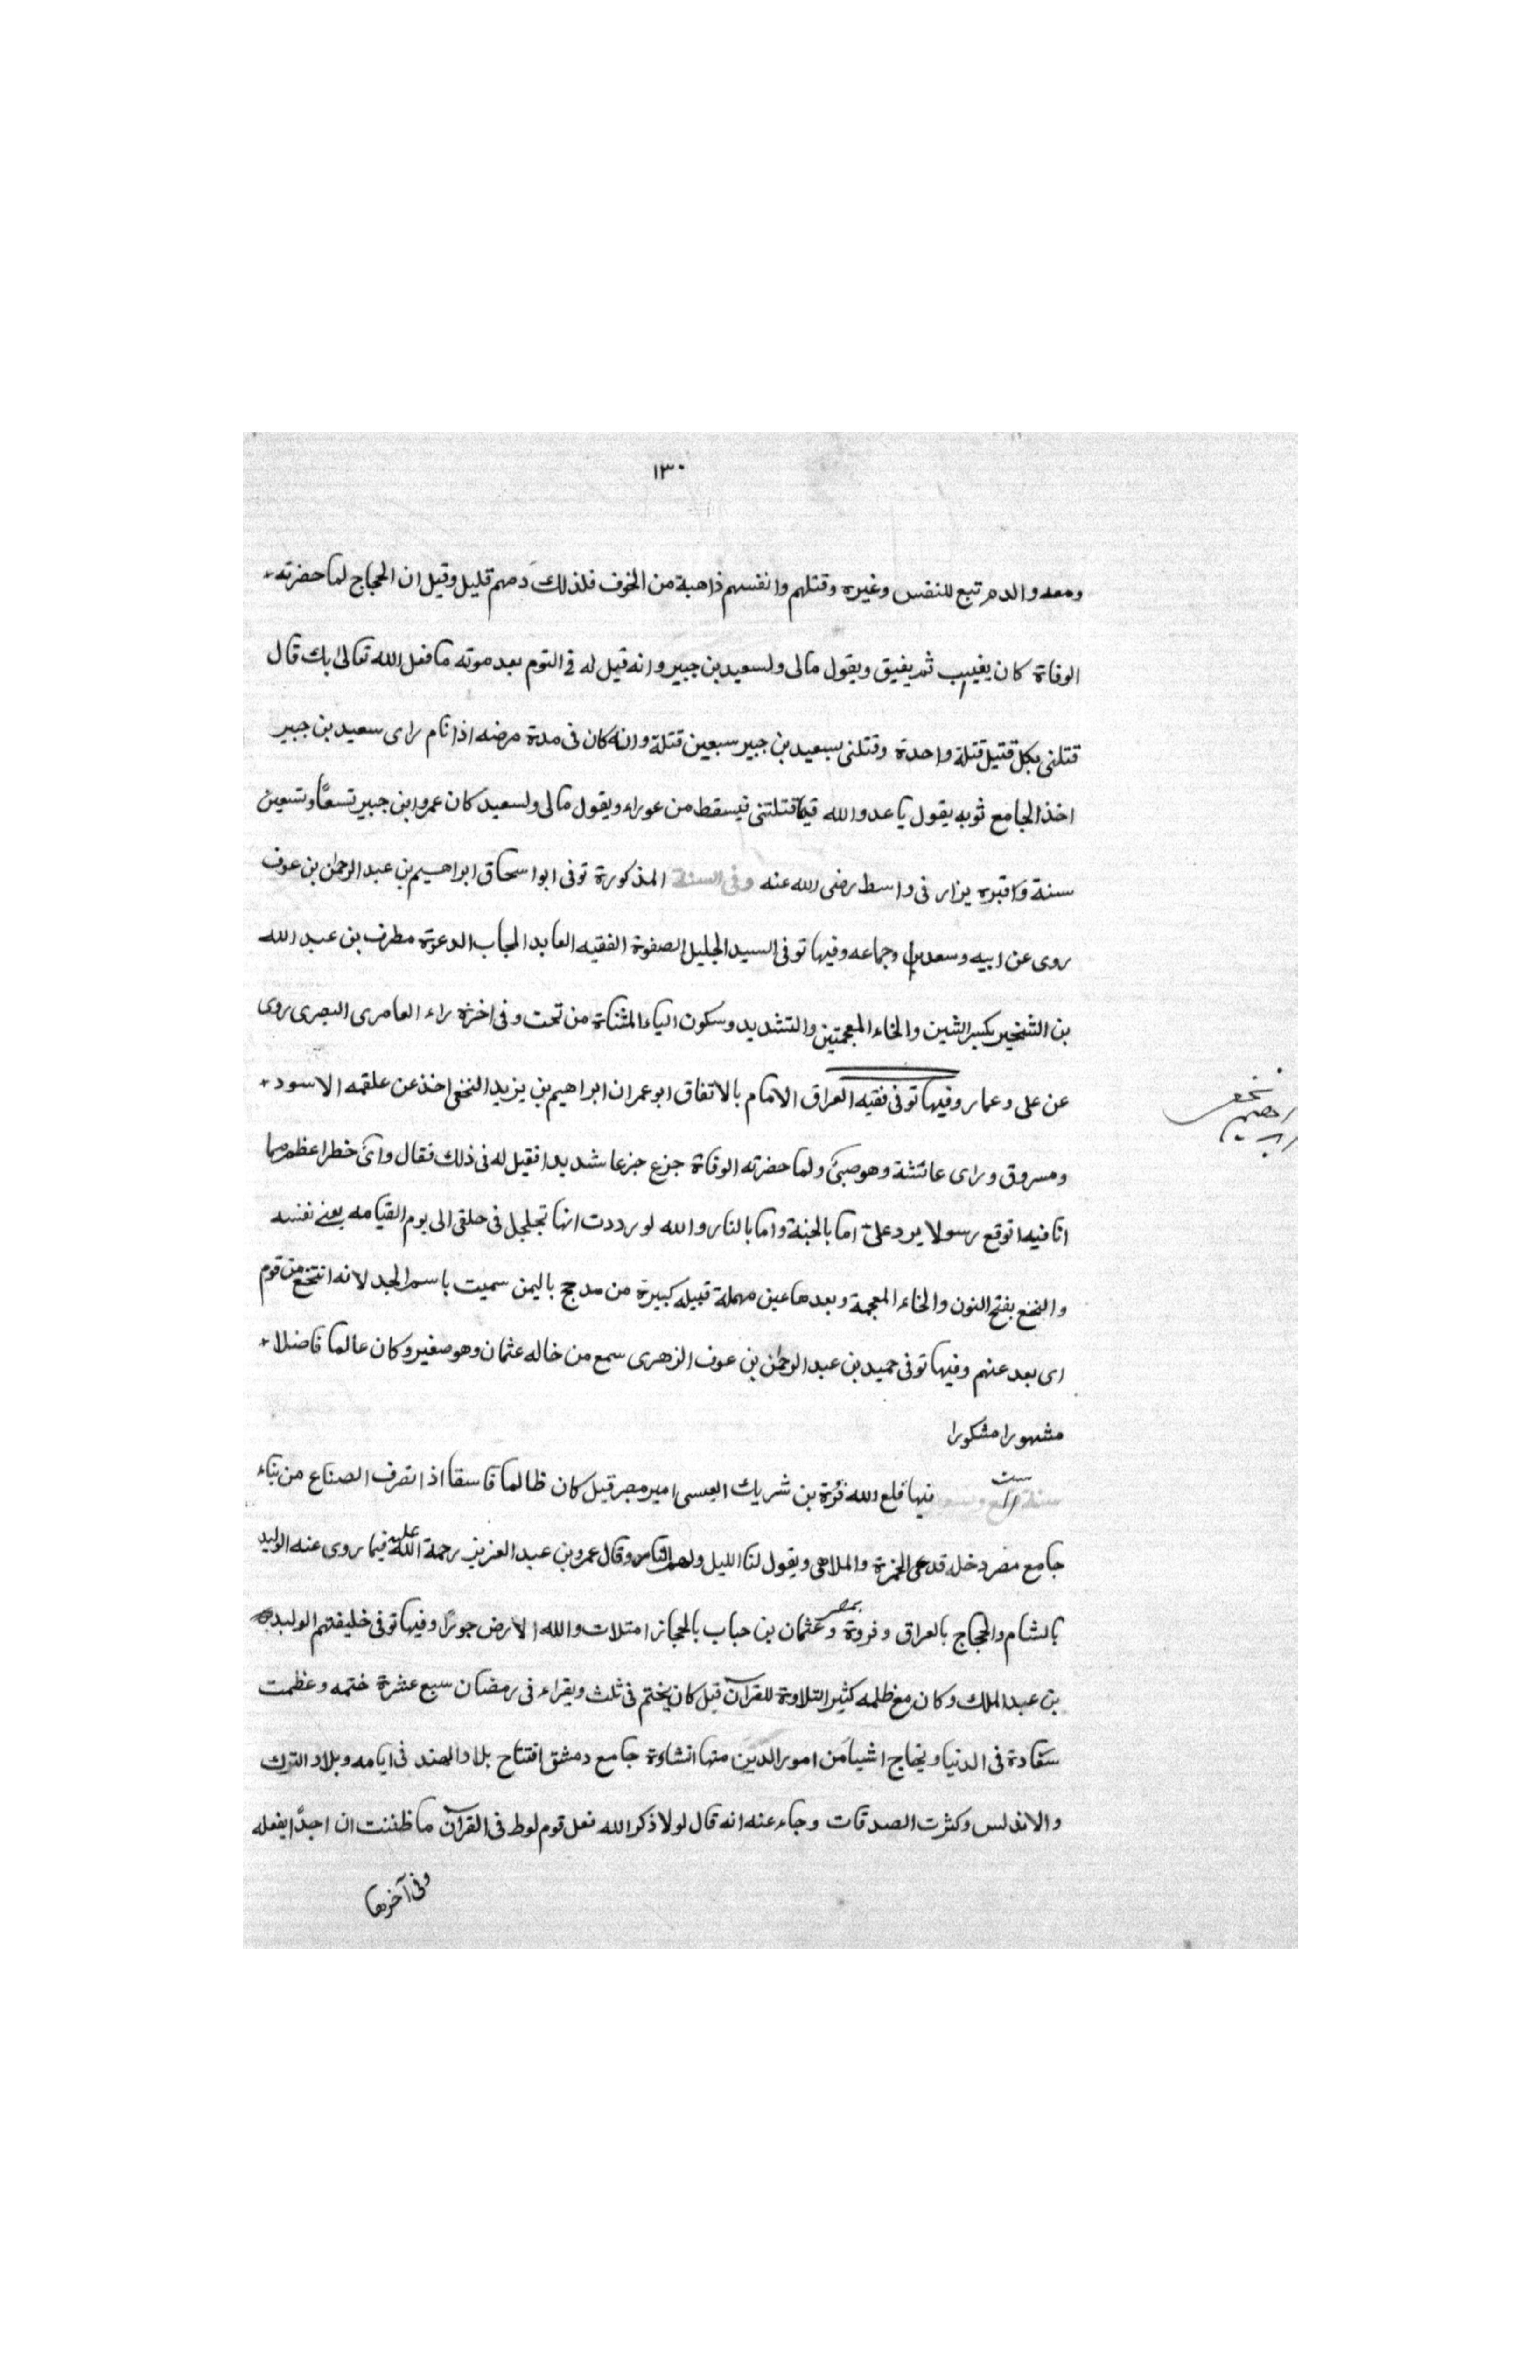 ١٣٠
ومعه والدم تبع للنفس وغيره وقتلهم وانفسهم ذاهبة من الخوف فلذلك دمهم قليل وقيل ان الحجاج لما حضرته
الوفاة كان يغيب ثم يفيق ويقول مالى ولسعيد بن جبير وانه قيل له فى النوم بعد موته ما فعل الله تعالى بك قال
قتلنى بكل قتيل قتلة واحدة وقتلنى بسعيد بن جبير سبعين قتلة وانه كان فى مدة مرضه اذا نام راى سعيد بن جبير
اخذ الجامع ثوبه يقول يا عدو الله قيما قتلتنى فيسقط من عوراء ويقول مالى ولسعيد كان عمر ابن جبير تسعًا وتسعين
سنة وقبره يزار فى واسط رضى الله عنه وفى السنة المذكورة توفى ابو اسحاق ابراهيم بن عبد الرحمن بن عوف
روى عن ابيه وسعد وجماعه وفيها توفى السيد الجليل الصفوة الفقيه العابد المجاب الدعوة مطرف بن عبد الله
بن الشخير بكسر الشين والخاء المعجمتين والتشديد وسكون الياء المثناة من تحت وفى اخرة راء العامرى البصرى روى
عن على وعمار وفيها توفى فقيه العراق الامام بالاتفاق ابو عمران ابراهيم بن يزيد النخعى اخذ عن علقمه الاسود
ابراهيم نخعى
ومسروق وراى عائشة وهو صبىّ ولما حضرته الوفاة جزع جزعا شديدا فقيل له فى ذلك فقال واىّ خطر اعظم مما
انا فيه اتوقع رسولا يرد علىّ اما بالجنة واما بالنار والله لو رددت انها تجلجل فى حلقى الى يوم القيامه يعنى نفسه
والنخع بفتح النون والخاء المعجمة وبعدها عين مهملة قبيله كبيرة من مدحج باليمن سميت باسم الجد لانه انتخع من قوم
اى بعد عنهم وفيها توفى حميد بن عبد الرحمن بن عوف الزهرى سمع من خاله عثمان وهو صغير وكان عالما فاضلا
مشهورا مشكورا
سنة ست فيها قلع الله قرة بن شريك العبسى امير مصر قيل كان ظالما فاسقا اذا انصرف الصناع من بناء
جامع مصر دخله قدعى الخمرة والملاهى ويقول لنا الليل ولهم الناس وقال عمر بن عبد العزيز رحمة الله عليه فيما روى عنه الوليد
بالشام والحجاج بالعراق وفروة بمصر وعثمان بن حباب بالحجاز امتلات والله الارض جورًا وفيها توفى خليفتهم الوليد
بن عبد الملك وكان مع ظلمه كثير التلاوة للقرآن قيل كان يختم فى ثلث ويقراء فى رمضان سبع عشرة ختمه وعظمت
سعادة فى الدنيا ونجاح اشيا من امور الدين منها انشاءة جامع دمشق افتتاح بلاد الهند فى ايامه وبلاد الترك
والاندلس وكثرت الصدقات وجاء عنه انه قال لولا ذكر الله فعل قوم لوط فى القرآن ما ظننت ان احدًا يفعله
وفى آخرها